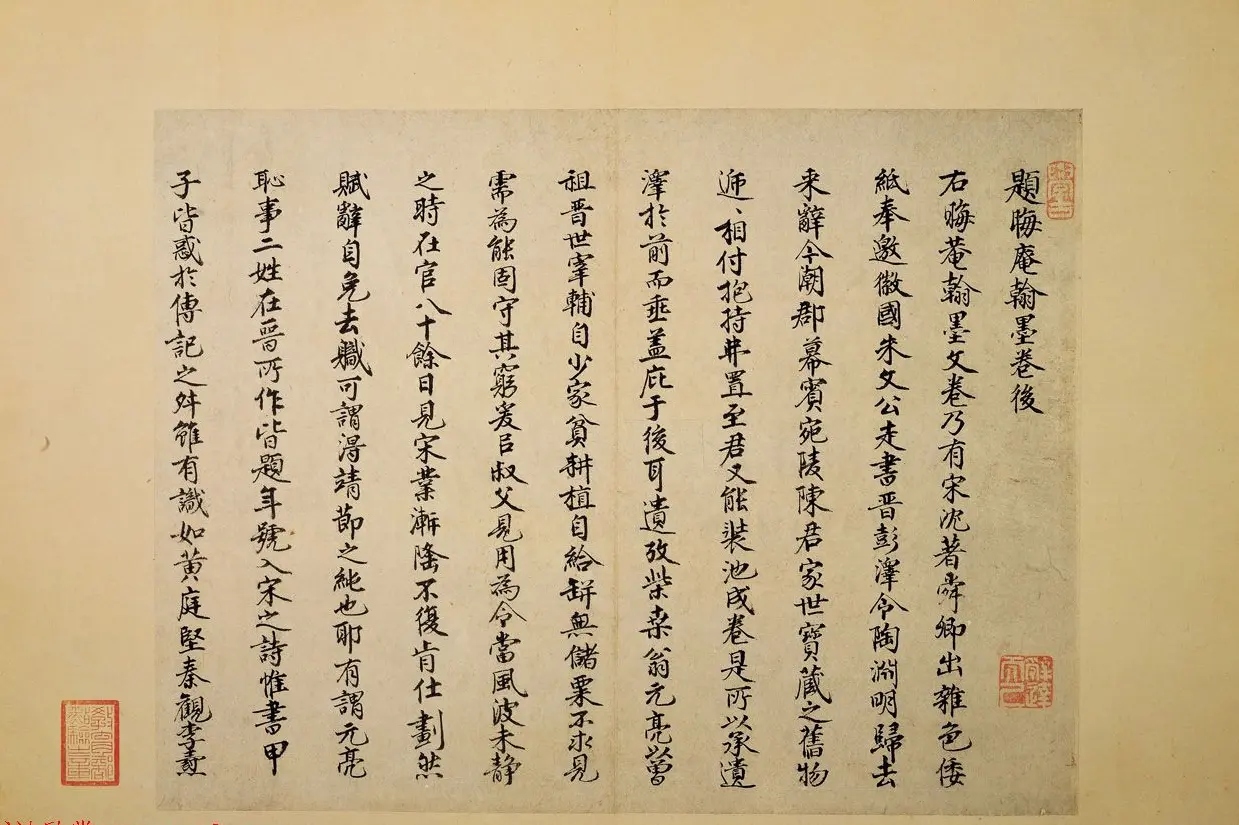 題晦庵翰墨卷後
右晦菴翰墨文卷乃有宋沈著舜卿出雜色倭
紙奉邀徽國朱文公走書晉彭澤令陶淵明歸去
来辭今潮郡幕賓宛陵陳君家世寶藏之舊物
遞〻相付抱持弆置至君又能裝池成卷是所以承遺
澤於前而垂蓋庇于後耳遺攷柴桒翁元亮曽
祖晋世宰輔自少家貧耕植自給缾無儲粟不求見
需為能固守其窮爰㠯叔父見用為令當風波未静
之時在官八十餘日見宋業漸隆不復肯仕劃然
賦辭自免去軄可謂淂靖莭之純也耶有謂元亮
恥事二姓在晋所作皆題年號入宋之詩惟書甲
子皆惑於傳記之舛雖有識如黄庭堅秦觀李燾